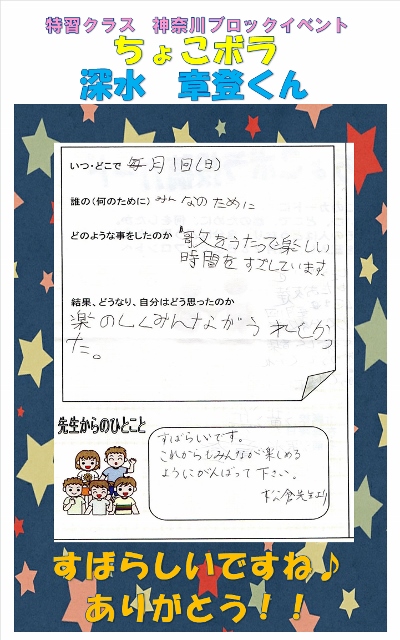 特習クラス 神奈川ブロックイベント
ちょこボラ
深水 章登くん
いつ・どこで 毎月1回(日)
誰の(何のために) みんなのために
どのような事をしたのか 歌をうたって楽しい
時間をすごしています
結果、どうなり、自分はどう思ったのか
楽のしくみんながうれしかっ
た。
先生からのひとこと
すばらしいです。
これからもみんなが楽しめる
ようにがんばって下さい。
松倉先生より
すばらしいですね♪
ありがとう!!